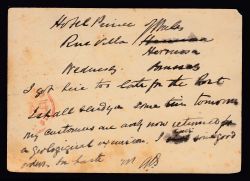 Hotel Prince of Wales
Rue Villa Hermosa
Hermosa
Wednesday
I got here too late for the Post
I shall send you some time tomorrow
my customers are only now returned from
a geological excursion. I good
In haste